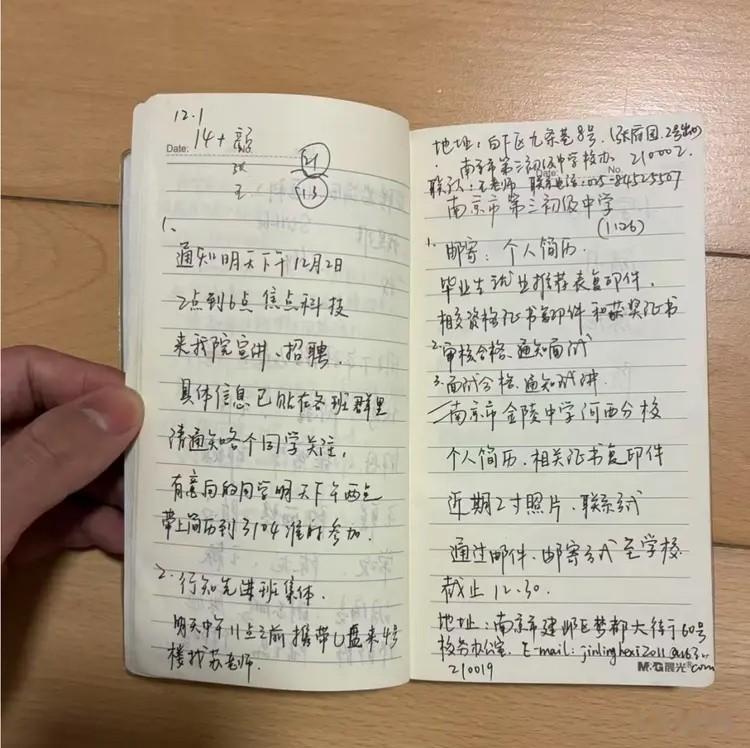 12.1
Date:
14+
21
王
13
1.
通知明天下午12月2日
2点到6点 焦点科技
来我院宣讲、招聘.
具体信息已贴在各班群里
请通知各个同学关注,
有意向的同学明天下午两点
带上简历到3104准时参加.
2. 行知先进班集体.
明天中午11点之前携带U盘来4号
楼找苏老师.
地址:白下区九条巷8号.(张府园.2号出口)
南京市第三初级中学校办. 210002.
Date: No.
联系人:王老师 联系电话:025-84525507
南京市第三初级中学
(1126)
1. 邮寄:个人简历.
毕业生就业推荐表复印件.
相关资格证书复印件和获奖证书
2. 审核合格、通知面试
3. 面试合格、通知试讲.
南京市金陵中学河西分校
个人简历.相关证书复印件
近期2寸照片.联系方式
通过邮件.邮寄方式至学校
截止12.30.
地址:南京市建邺区梦都大街60号
校务办公室. E-mail: jinlinghexi2011@163.com
210019
M&G晨光